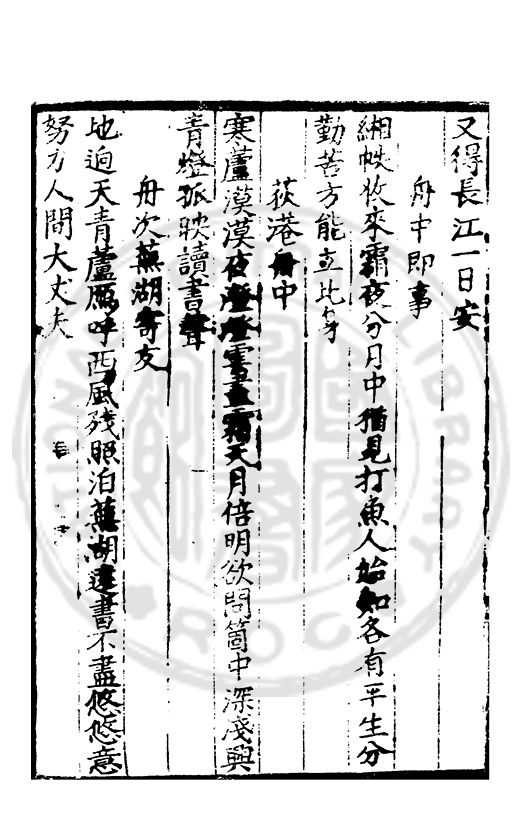 又得長江一日安
舟中即事
緗帙收來霜夜分月中猶見打魚人始知各有平生分
勤苦方能立此身
荻港舟中
寒蘆漠漠夜澄澄雲盡霜天月倍明欲問箇中深淺興
青燈孤映讀書聲
舟次蕪湖寄友
地迥天青蘆鴈呼西風殘照泊蕪湖遠書不盡悠悠意
努力人間大丈夫
LIBRARY
ROC